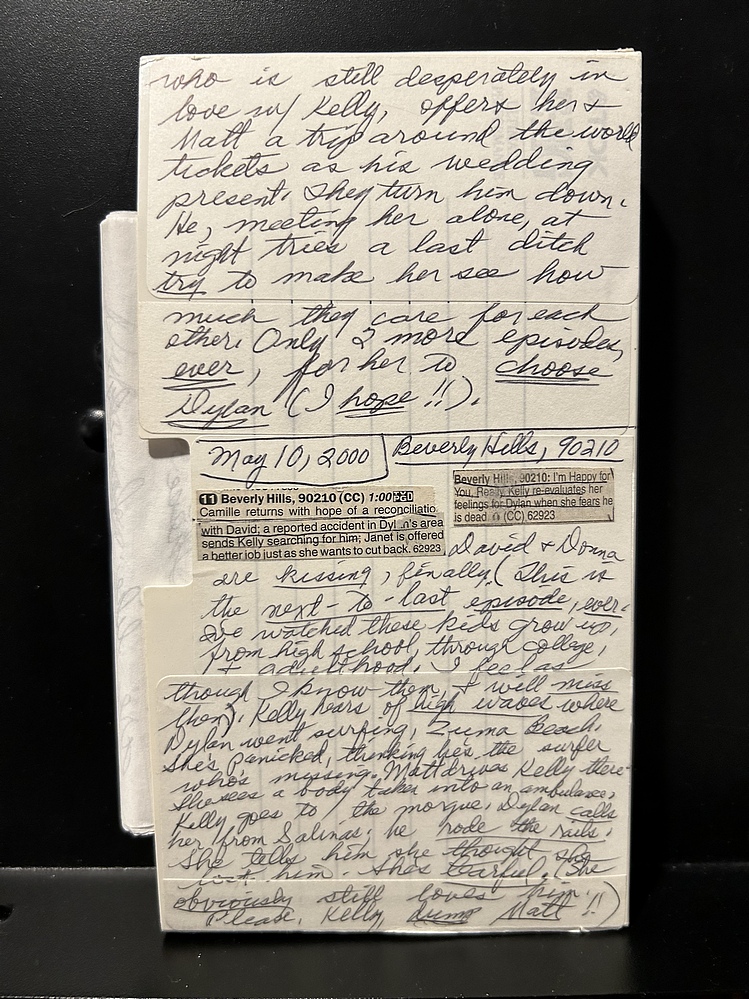 who is still desperately in
love w/ Kelly, offers her +
Matt a trip around the world
tickets as his wedding
present. They turn him down.
He, meeting her alone, at
night tries a last ditch
try to make her see how
much they care for each
other. Only 2 more episodes,
ever, for her to choose
Dylan (I hope!!).
May 10, 2000
Beverly Hills, 90210
11 Beverly Hills, 90210 (CC) 1:00
Camille returns with hope of a reconciliatio
with David; a reported accident in Dyl n's area
sends Kelly searching for him; Janet is offered
a better job just as she wants to cut back. 62923
Beverly Hills, 90210: I'm Happy for
You, Really Kelly re-evaluates her
feelings for Dylan when she fears he
is dead. (CC) 62923
David + Donna
are kissing, finally. (This is
the next-to-last episode, ever.
I've watched these kids grow up,
from high school, through college,
+ adulthood. I feel as
though I know them, + will miss
them). Kelly hears of high waves where
Dylan went surfing, Zuma Beach.
She's panicked, thinking he's the surfer
who's missing. Matt drives Kelly there.
She sees a body taken into an ambulance.
Kelly goes to the morgue. Dylan calls
her from Salinas; he rode the rails.
She tells him she thought she
lost him. She's tearful. (She
obviously still loves him.
Please, Kelly dump Matt!!)